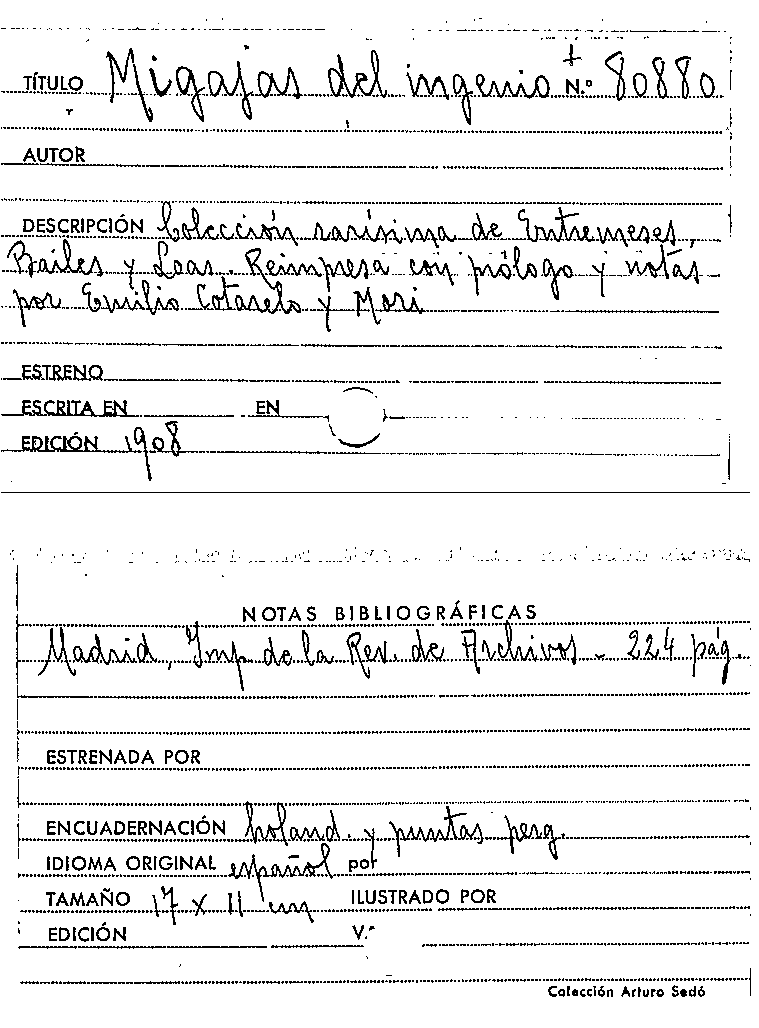 TÍTULO Migajas del ingenio N.º 80880
AUTOR
DESCRIPCIÓN Colección rarísima de Entremeses,
Bailes y Loas. Reimpresa con prólogo y notas
por Emilio Cotarelo y Mori
ESTRENO
ESCRITA EN EN
EDICIÓN 1908
NOTAS BIBLIOGRÁFICAS
Madrid, Imp de la Rev. de Archivos - 224 pág.
ESTRENADA POR
ENCUADERNACIÓN holand. y puntas perg.
IDIOMA ORIGINAL español por
TAMAÑO 17 x 11 cm ILUSTRADO POR
EDICIÓN V.ª
Colección Arturo Sedó